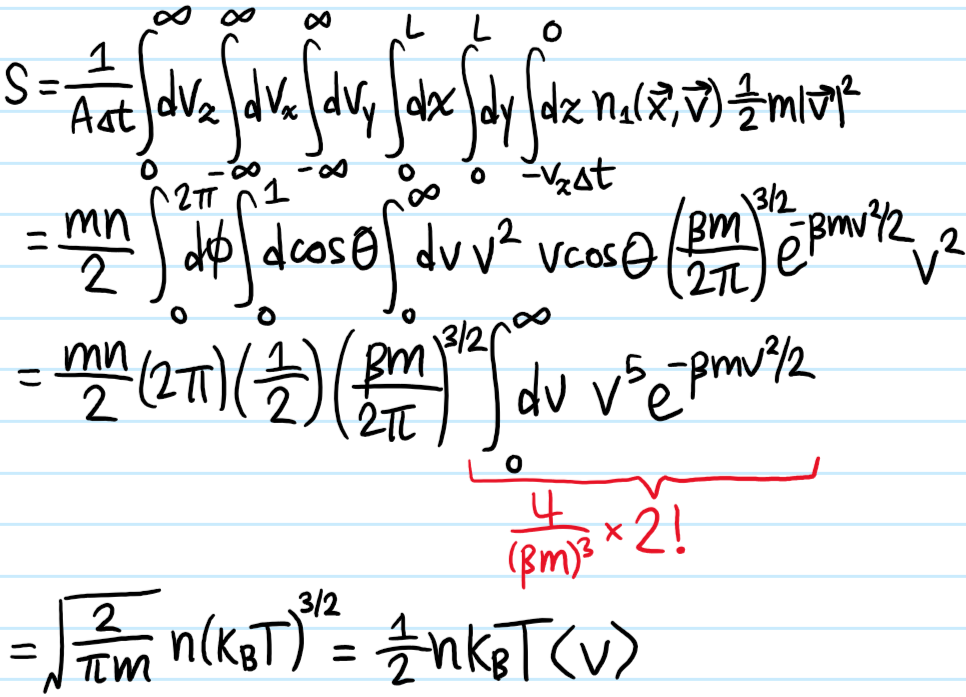 S = \frac{1}{A\Delta t} \int_0^\infty dv_z \int_{-\infty}^\infty dv_x \int_{-\infty}^\infty dv_y \int_0^L dx \int_0^L dy \int_{-v_z\Delta t}^0 dz\, n_1(\vec{x},\vec{v}) \frac{1}{2} m|\vec{v}|^2
= \frac{mn}{2} \int_0^{2\pi} d\phi \int_0^1 d\cos\theta \int_0^\infty dv\, v^2\, v\cos\theta \left(\frac{\beta m}{2\pi}\right)^{3/2} e^{-\beta mv^2/2} v^2
= \frac{mn}{2} (2\pi) \left(\frac{1}{2}\right) \left(\frac{\beta m}{2\pi}\right)^{3/2} \int_0^\infty dv\, v^5 e^{-\beta mv^2/2}
\frac{4}{(\beta m)^3} \times 2!
= \sqrt{\frac{2}{\pi m}}\, n(k_B T)^{3/2} = \frac{1}{2} n k_B T \langle v \rangle